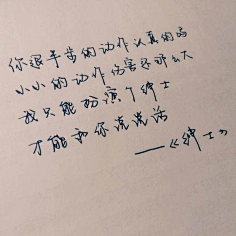 你退半步的动作认真的吗
小小的动作伤害还那么大
我只能扮演个绅士
才能和你说说话
——《绅士》